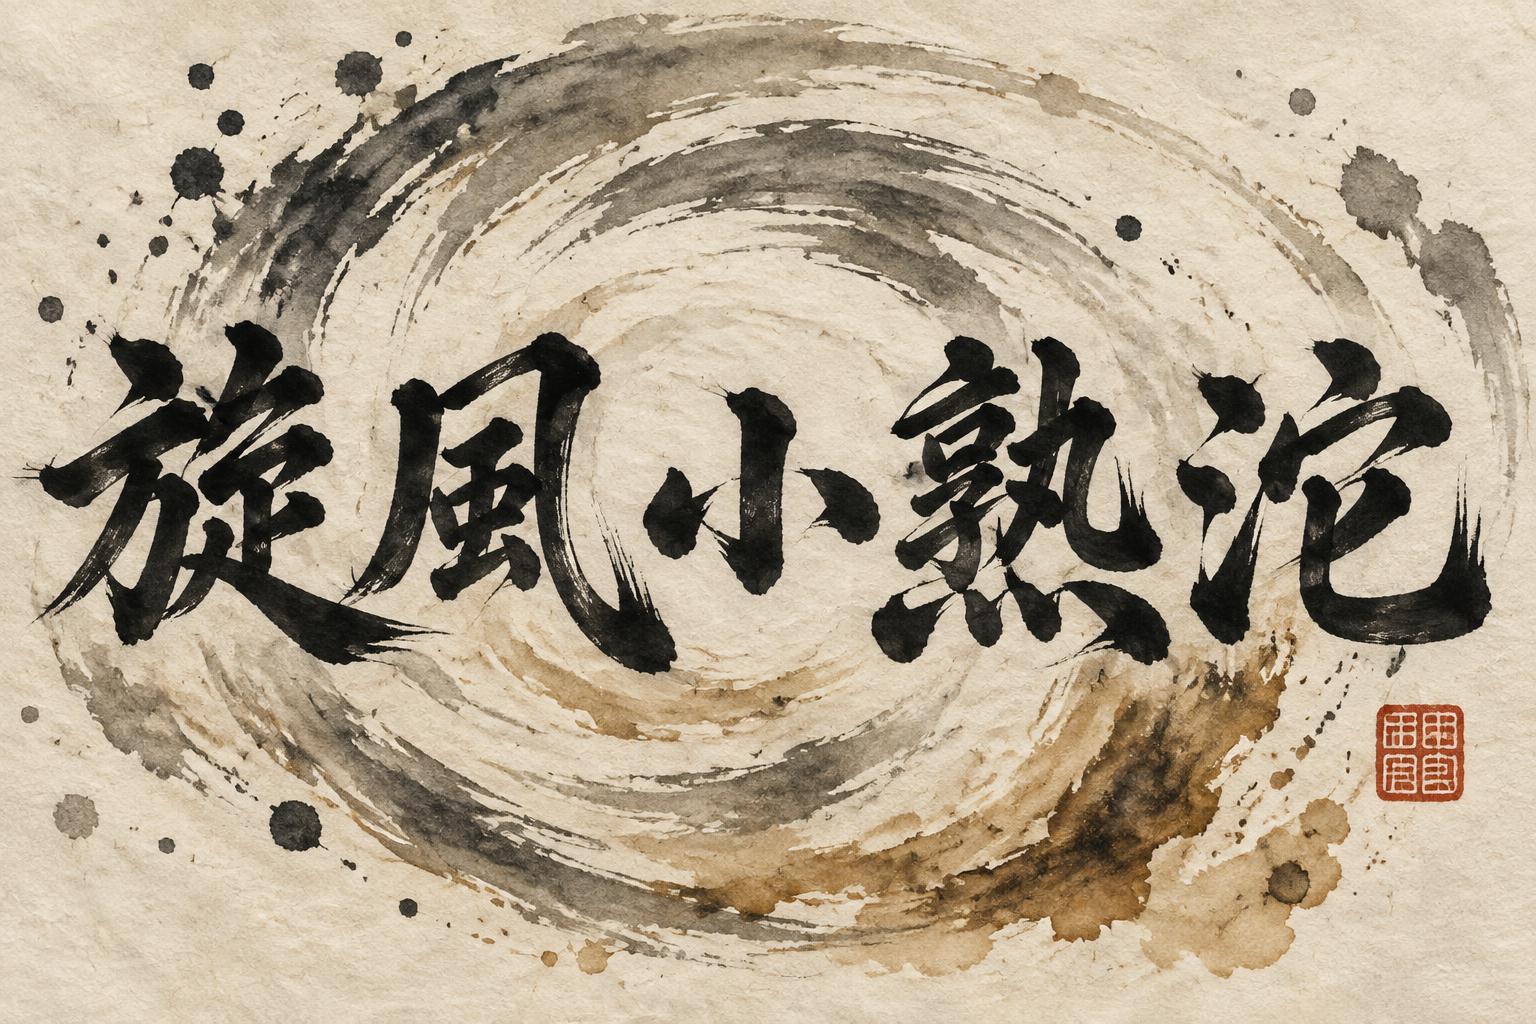 旋風小熟沱